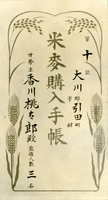 第十記
大川郡引田町
米麥購入手帳
世帯主
香川桃太郎殿
家族人數
三名